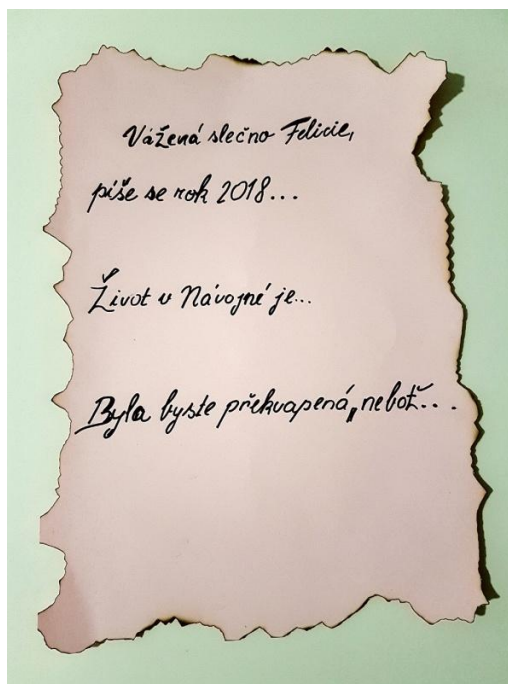 Vážená slečno Felicie,
píše se rok 2018...
Život v Návojné je...
Byla byste překvapená, neboť...